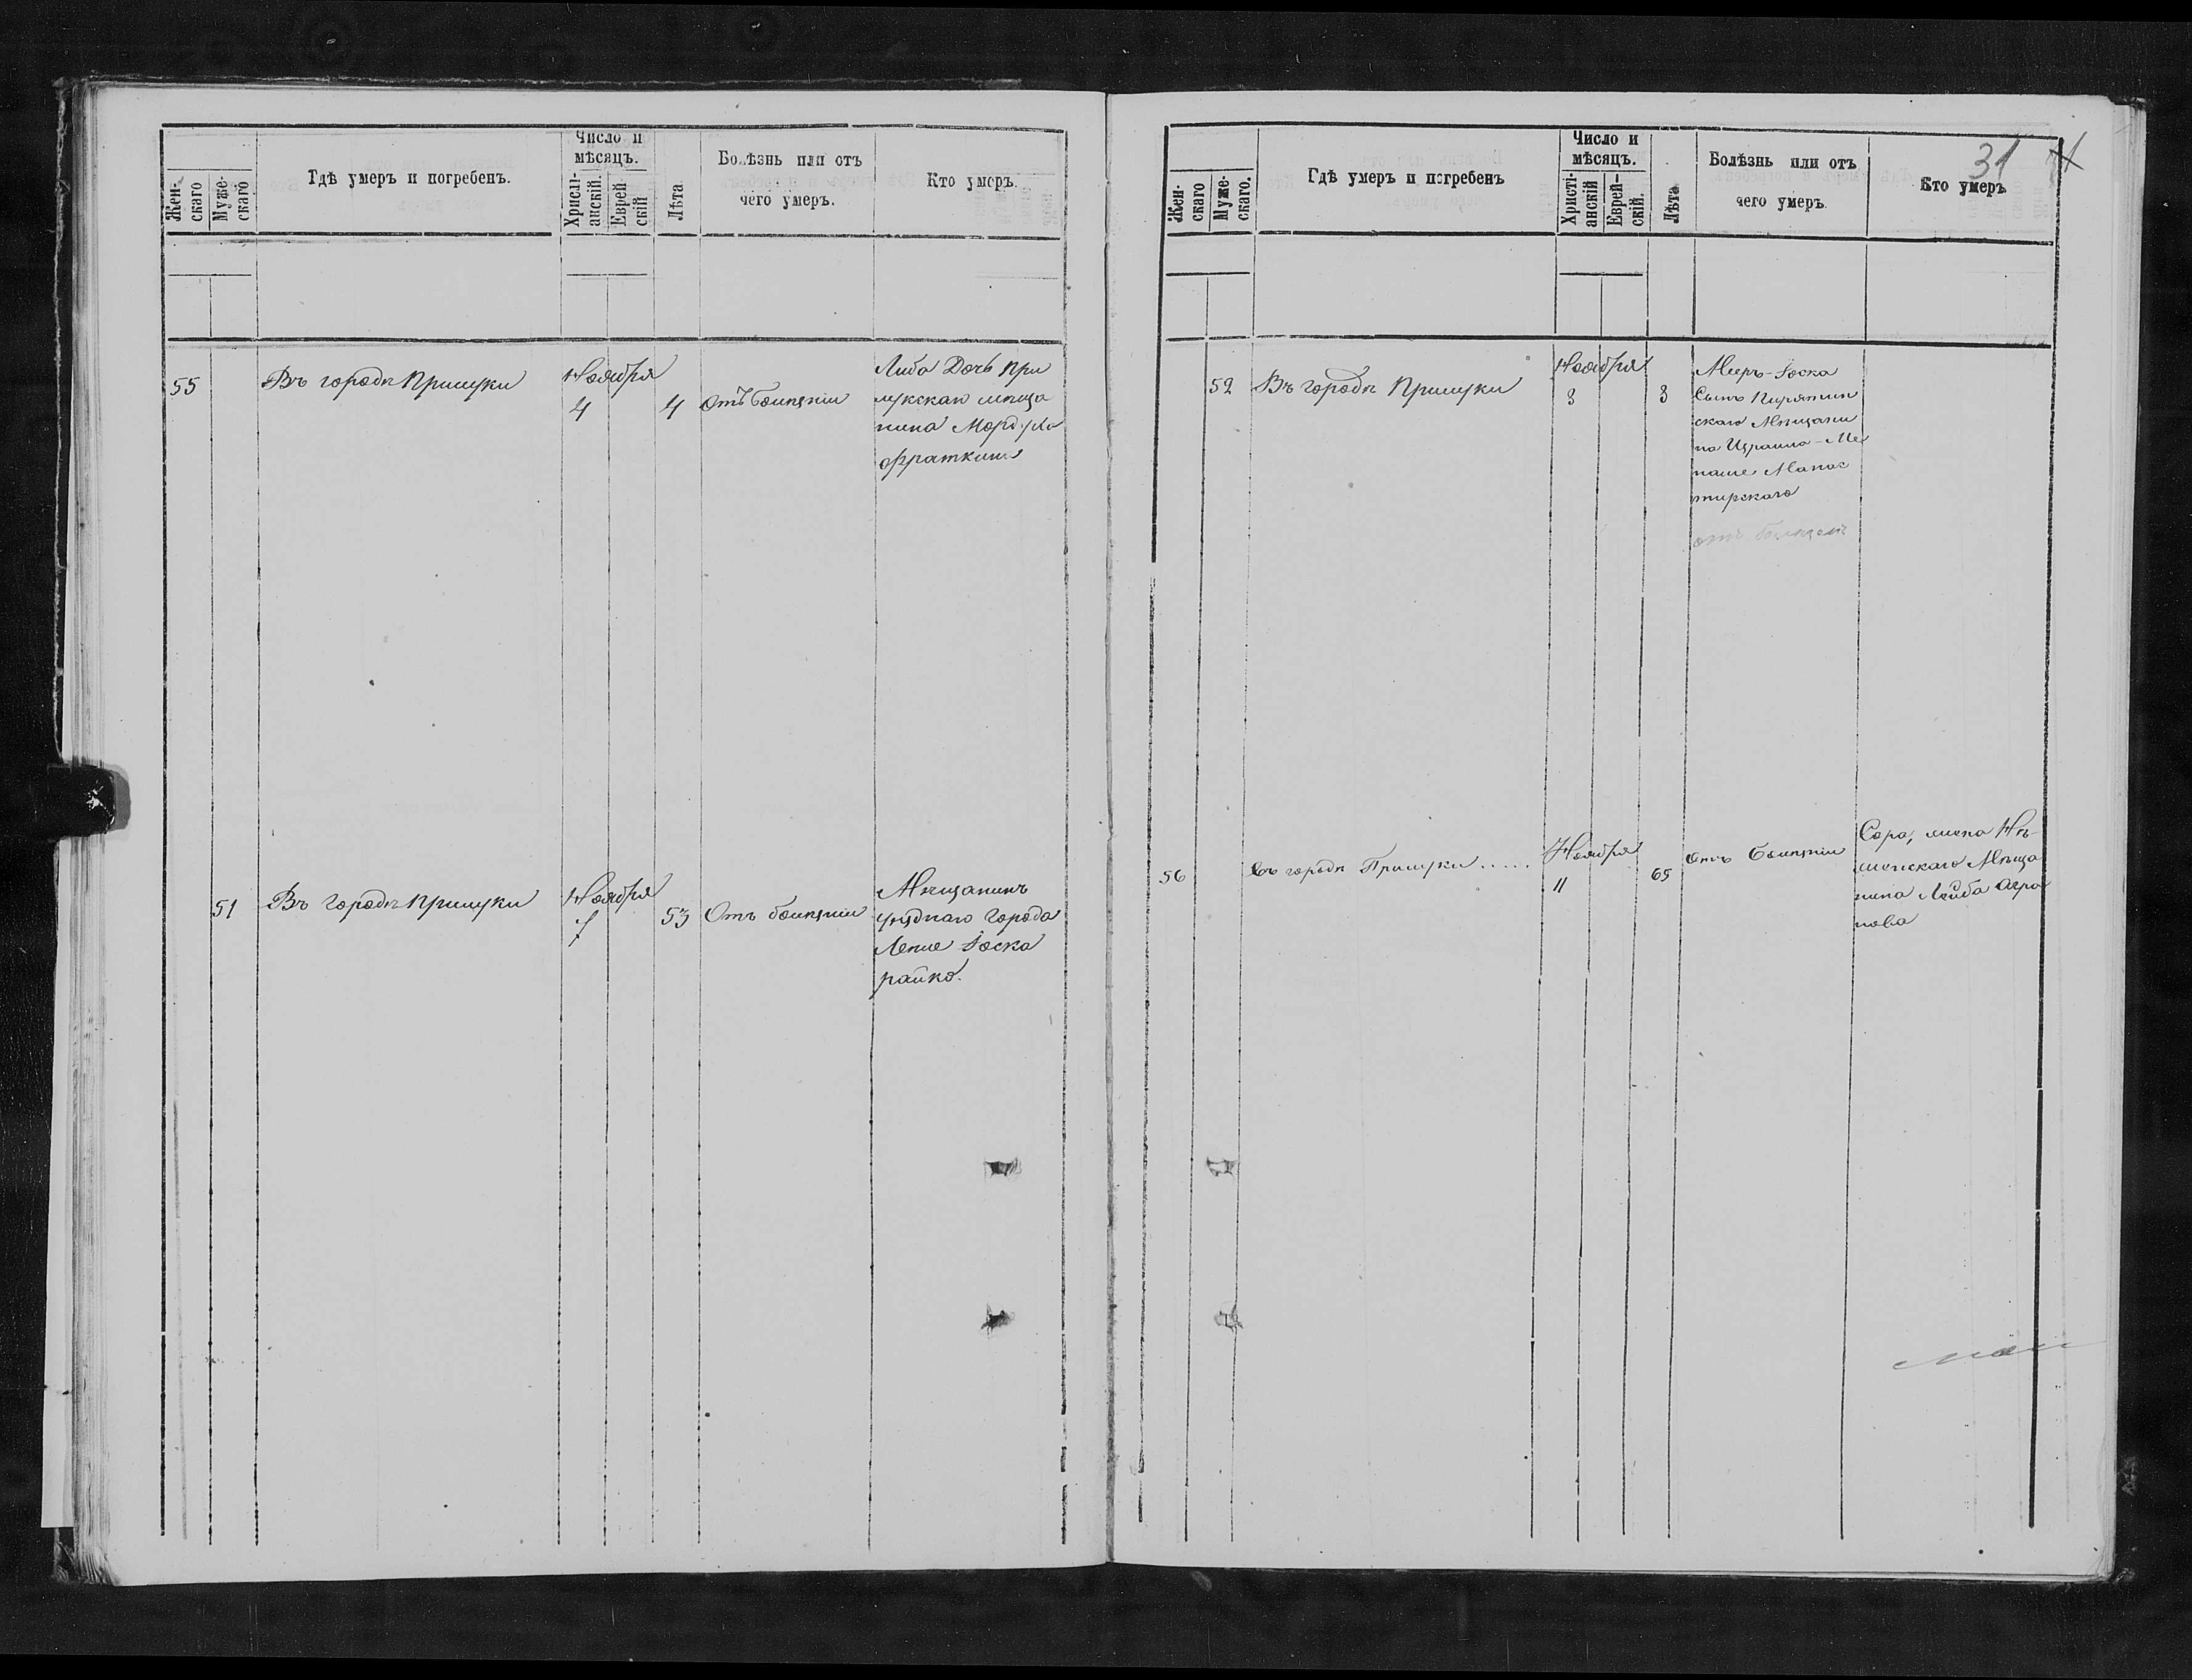 Жен-
скаго
Муже-
скаго
Гдѣ умеръ и погребенъ.
Число и
мѣсяцъ.
Христі-
анскій.
Еврей
скій
Лѣта
Болѣзнь или отъ
чего умеръ.
Кто умеръ.
55
Въ городѣ Прилуки
Ноября
4
4
Отъ болѣзни
Либа Дочь При
лукскаго мѣща
нина Мордуха
Фраткина
51
Въ городѣ Прилуки
Ноября
7
53
Отъ болѣзни
Мѣщанинъ
уѣзднаго города
Іоска
райко.
31
Жен-
скаго
Муже-
скаго.
Гдѣ умеръ и погребенъ
Число и
мѣсяцъ.
Христі-
анскій
Еврей-
скій.
Лѣта
Болѣзнь или отъ
чего умеръ.
Кто умеръ
52
Въ городѣ Прилуки
Ноября
3
3
Мееръ-Іоска
Сынъ Пирятин
скаго Мѣщани
на Израиля-Ме
наше Манас
тирскаго
отъ болѣзни
56
Въ городѣ Прилуки .....
Ноября
11
65
Отъ болѣзни
Сора, жена Нѣ-
жинскаго Мѣща
нина Лейба Агра
нова